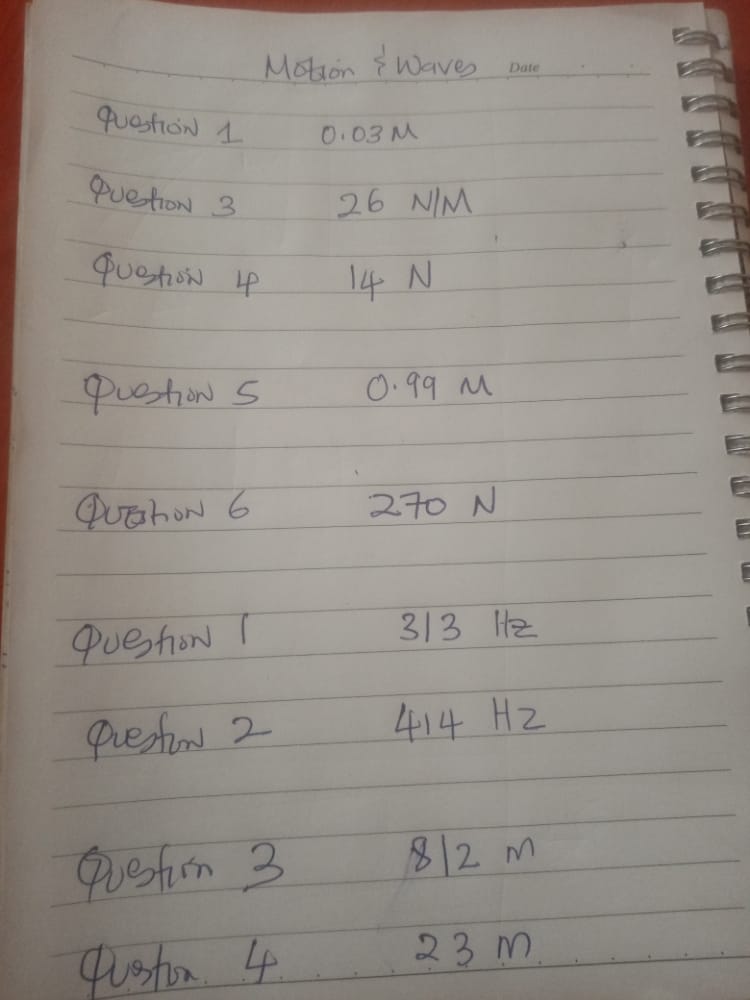 Motion & Waves Date
Question 1 0.03 M
Question 3 26 N/M
Question 4 14 N
Question 5 0.99 M
Question 6 270 N
Question 1 313 Hz
Question 2 414 HZ
Question 3 812 m
Question 4 23 m